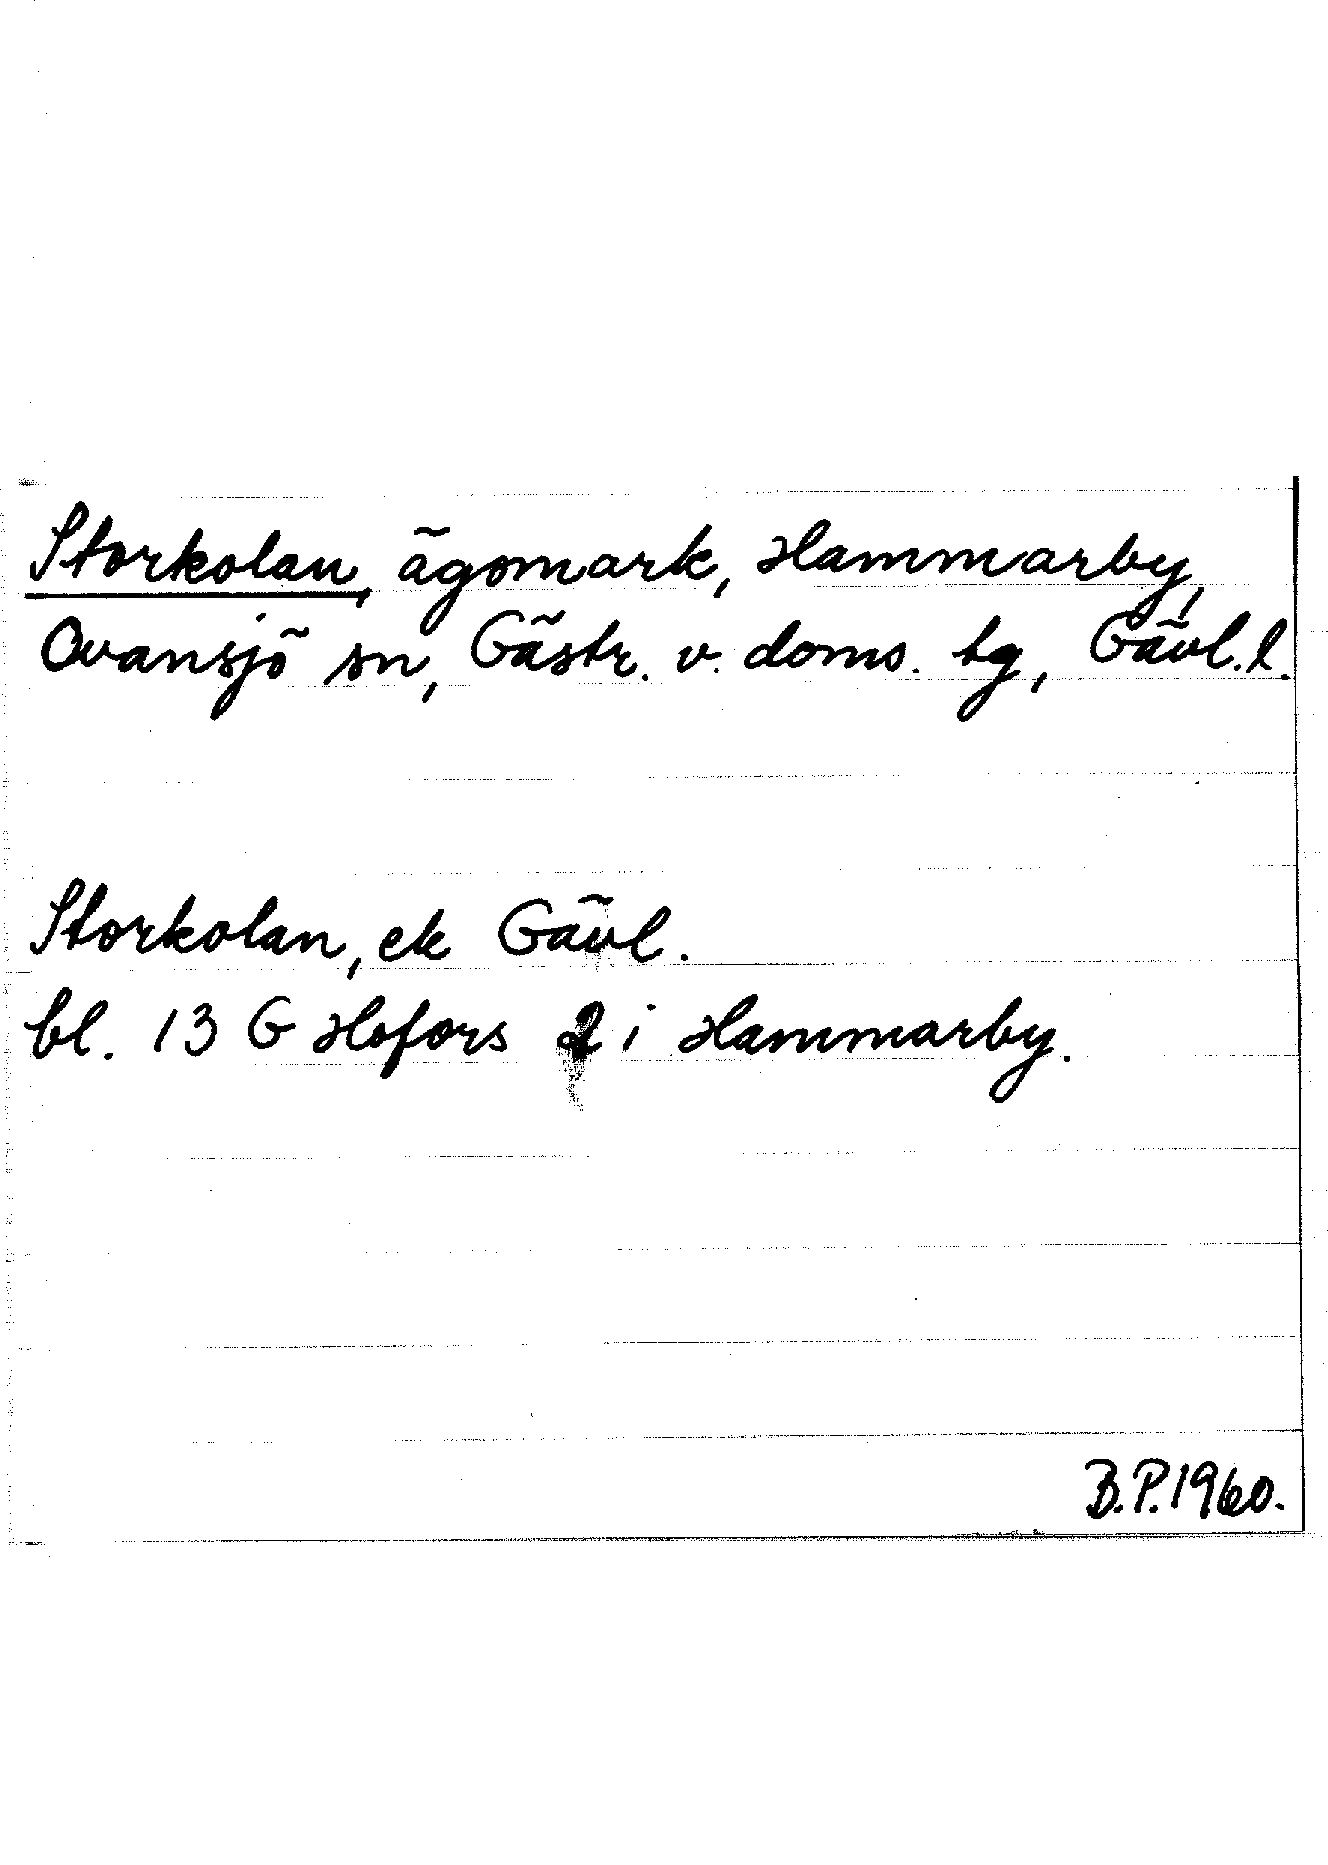 Storkolan, ägomark, Hammarby,
Ovansjö sn, Gästr. v. doms. tg, Gävl. l.
Storkolan, ek Gävl.
bl. 13 G Hofors 2 i Hammarby.
B.P. 1960.